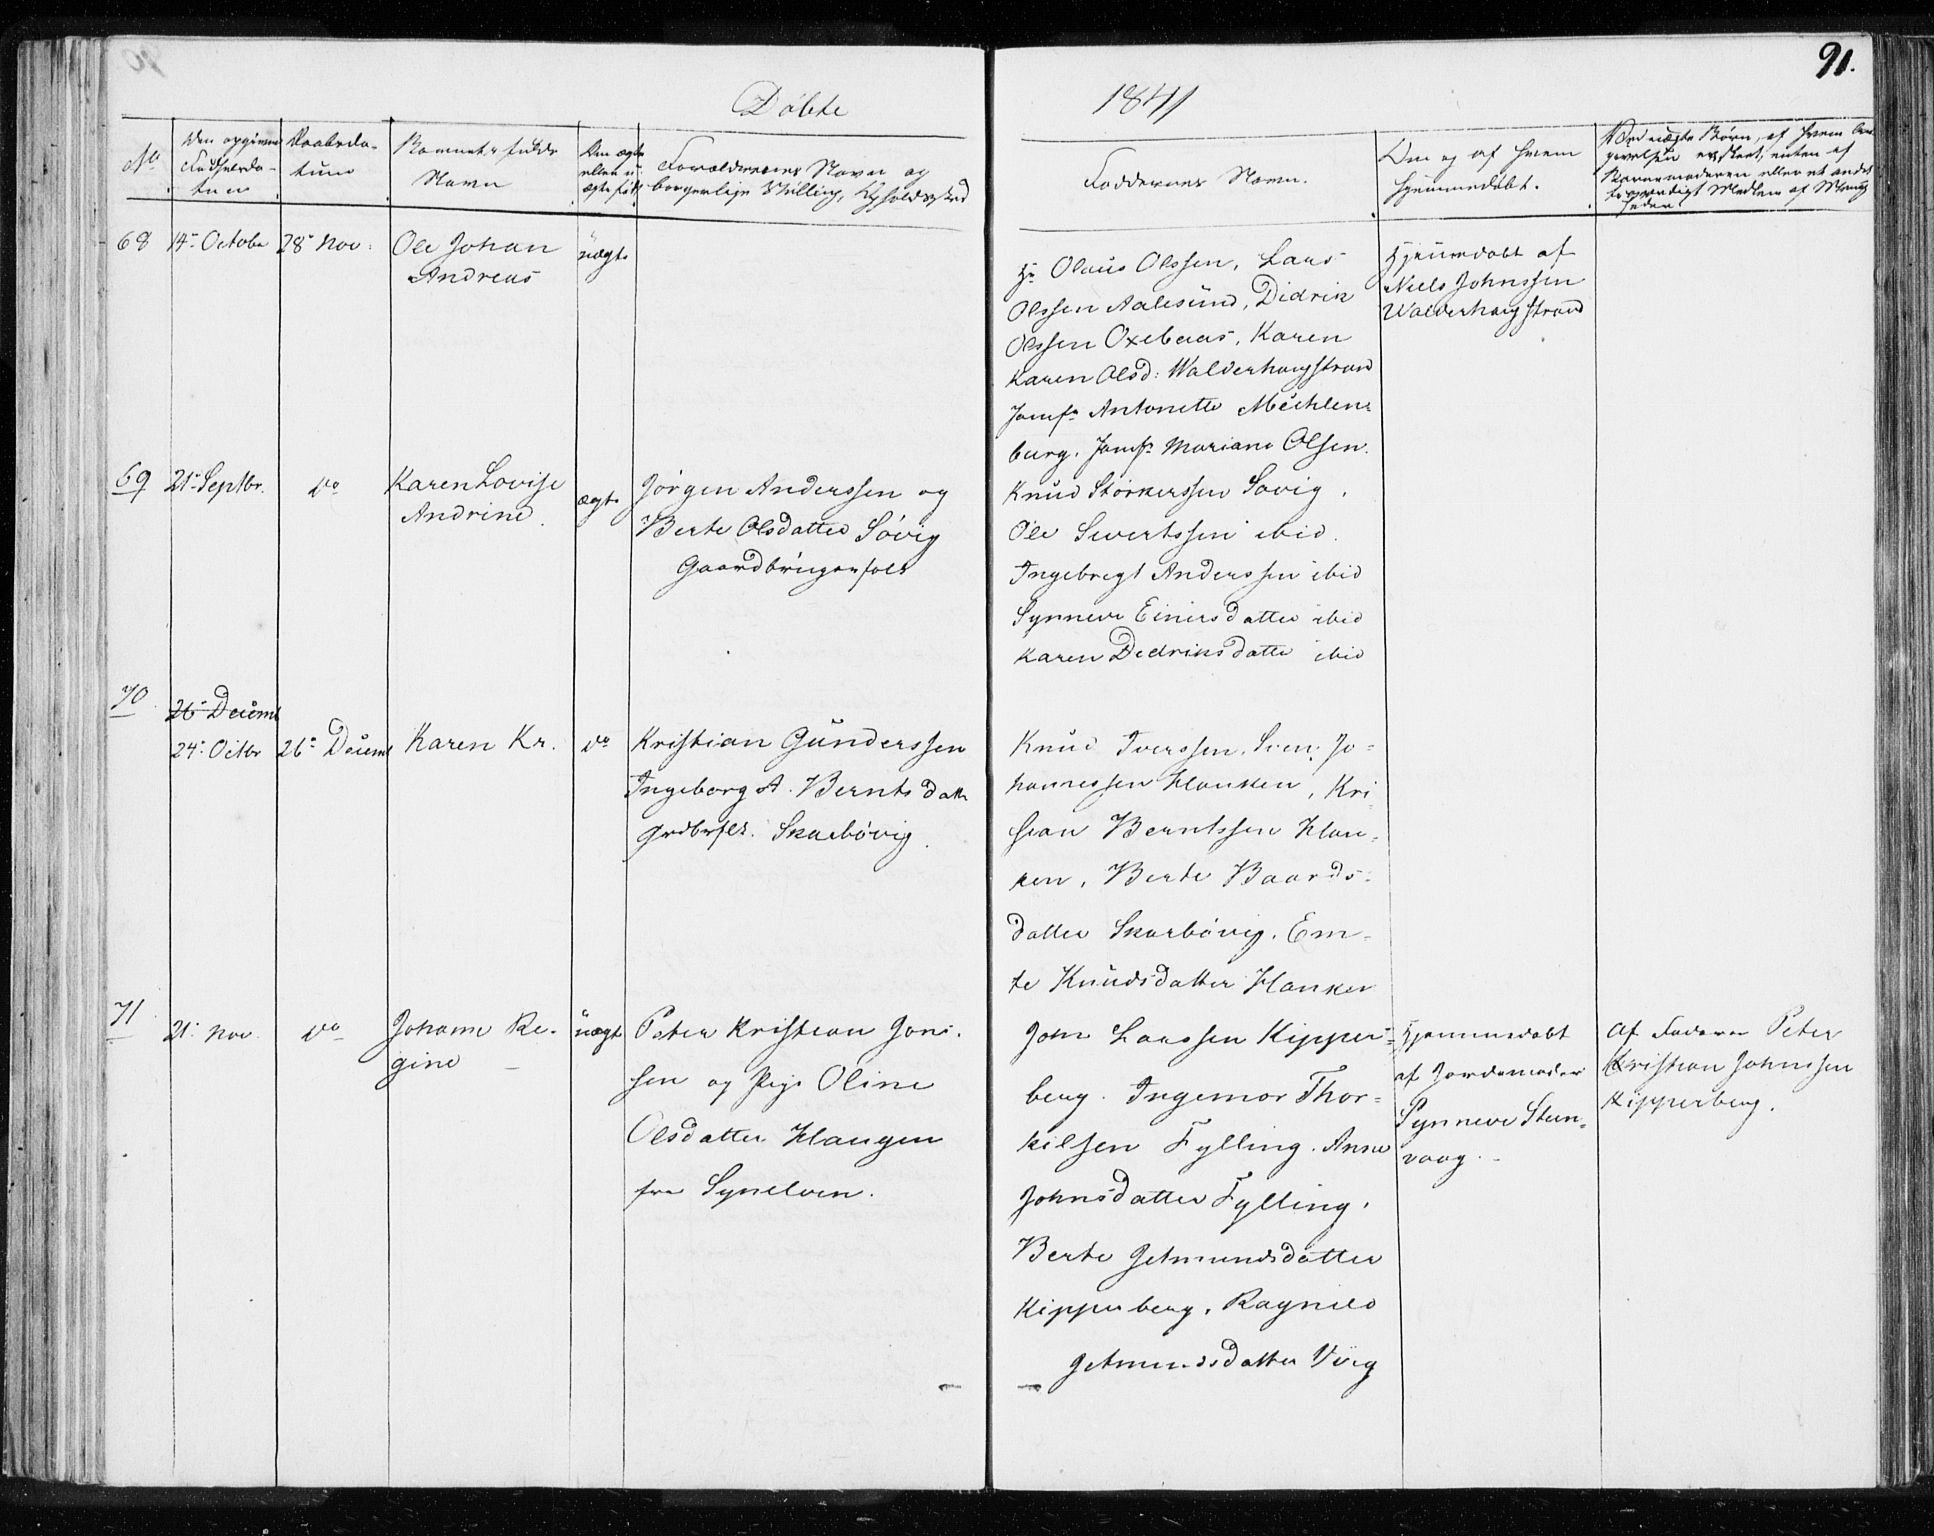 91.
Döbte
1841
No
Den opgivne
Fødselsda-
tum
Daabsda-
tum
Barnets fulde
Navn
Den ægte
eller u-
ægte født
Forældrenes Navn og
borgerlige Stilling, Opholdssted
Faddernes Navn.
Om og af hvem
hjemmedøbt.
Ved uægte Børn, af hvem An-
givelsen er skeet, enten af
Barnemoderen eller et andet
troværdigt Medlem af Menig-
heden
68
14de Octobr
28de Nov:
Ole Johan
Andreas
uægte
Hr Olaus Olssen, Lars
Olssen Aalesund, Didrik
Olssen Oxebaas, Karen
Karen Olsd: Walderhaugstrand
Jomfr Antonette Mechlen-
burg, Jomfr Mariane Olsen.
Hjemmedøbt af
Niels Johnssen
Walderhaugstrand
69
21de Septbr.
do
Karen Lovise
Andrine.
ægte
Jørgen Anderssen og
Berte Olsdatter Søvig
Gaardbrugerfolk
Knud Størkerssen Søvig,
Ole Sivertssen ibid.
Ingebregt Anderssen ibid
Synneve Einersdatter ibid
Karen Dedriksdatter ibid
70
26de Decemb
24de Octbr
26de Decemb
Karen Kr.
do
Kristian Gunderssen
Ingeborg A. Berntsdattr
Grdbrflk. Skarbövig.
Knud Iverssen, Sven Jo-
hannessen Hanken, Kri-
stian Berntssen Han-
ken, Berte Baards-
datter Skarbövig. Em-
te Knudsdatter Hanken
71
21. Nov.
do
Johanne Re-
gine
uægte
Peter Kristian Jons-
sen og Pige Oline
Olsdatter Haugen
fra Synelven.
John Larssen Kipper-
berg. Ingemor Thor-
kilsen Fylling. Anne
Johnsdatter Fylling,
Berte Getmundsdatter
Kipperberg, Ragnild
Getmundsdatter Viig
Hjemmedøbt
af Jordemoder
Synneve Steen-
vaag.
Af Faderen Peter
Kristian Johnssen
Kipperberg.